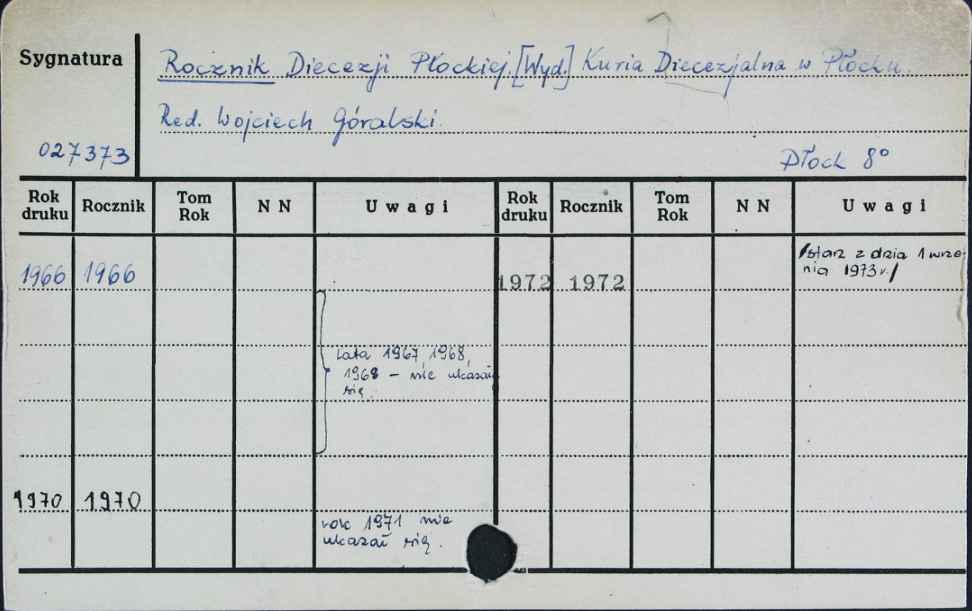 Sygnatura
Rocznik Diecezji Płockiej. [Wyd.] Kuria Diecezjalna w Płocku.
Red. Wojciech Góralski.
027373
Płock 8°
Rok druku Rocznik Tom Rok N N Uwagi Rok druku Rocznik Tom Rok N N Uwagi
1966 1966
1972 1972
/starz z dnia 1 wrze-
nia 1973 r./
Lata 1967, 1968,
1968 – nie ukazał
się.
1970 1970
rok 1971 nie
ukazał się.